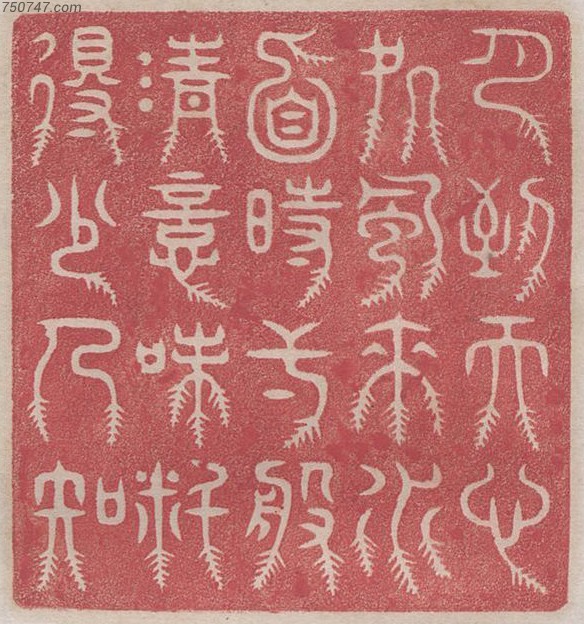 750747.com
月到天心
處風來水
面時一般
清意味料
得少人知